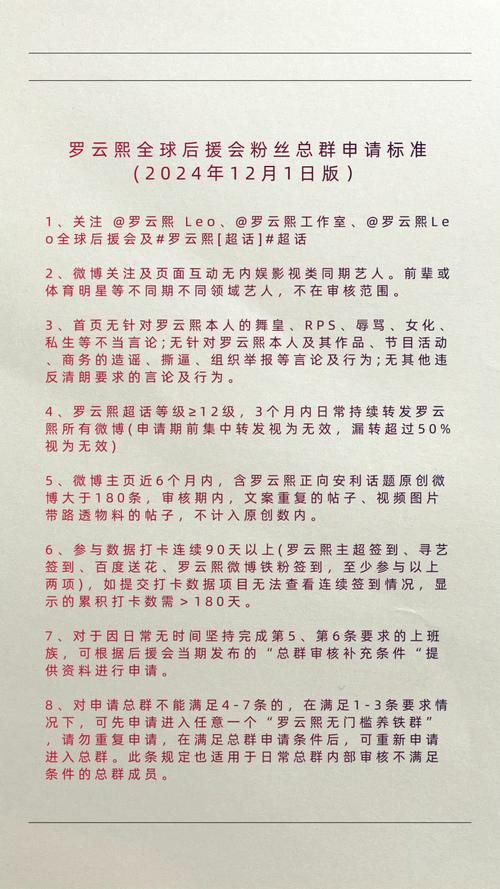 罗云熙全球后援会粉丝总群申请标准
(2024年12月1日版)
1、关注 @罗云熙 Leo、@罗云熙工作室、@罗云熙Le
o全球后援会及#罗云熙[超话]#超话
2、微博关注及页面互动无内娱影视类同期艺人。前辈或
体育明星等不同期不同领域艺人，不在审核范围。
3、首页无针对罗云熙本人的舞皇、RPS、辱骂、女化、
私生等不当言论;无针对罗云熙本人及其作品、节目活动
、商务的造谣、撕逼、组织举报等言论及行为;无其他违
反清朗要求的言论及行为。
4、罗云熙超话等级≥12级，3个月内日常持续转发罗云
熙所有微博(申请期前集中转发视为无效，漏转超过50%
视为无效)
5、微博主页近6个月内，含罗云熙正向安利话题原创微
博大于180条，审核期内，文案重复的帖子、视频图片
带路透物料的帖子，不计入原创数内。
6、参与数据打卡连续90天以上(罗云熙主超签到、寻艺
签到、百度送花、罗云熙微博铁粉签到，至少参与以上
两项)，如提交打卡数据项目无法查看连续签到情况，显
示的累积打卡数需＞180天。
7、对于因日常无时间坚持完成第5、第6条要求的上班
族，可根据后援会当期发布的“总群审核补充条件“提
供资料进行申请。
8、对申请总群不能满足4-7条的，在满足1-3条要求情
况下，可先申请进入任意一个“罗云熙无门槛养铁群”
，请勿重复申请，在满足总群申请条件后，可重新申请
进入总群。此条规定也适用于日常总群内部审核不满足
条件的总群成员。